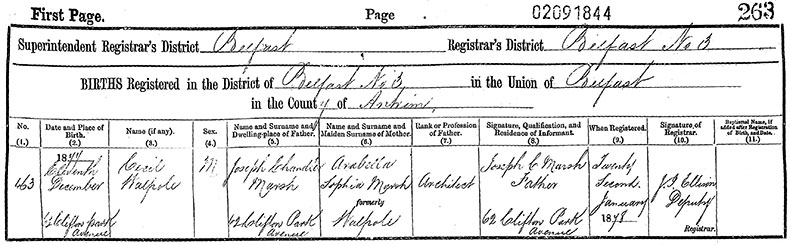 First Page. Page 02091844 263
Superintendent Registrar's District Belfast Registrar's District Belfast No 3
BIRTHS Registered in the District of Belfast No 3 in the Union of Belfast
in the County of Antrim
No. (1.) Date and Place of Birth. (2.) Name (if any). (3.) Sex. (4.) Name and Surname and Dwelling-place of Father. (5.) Name and Surname and Maiden Surname of Mother. (6.) Rank or Profession of Father. (7.) Signature, Qualification, and Residence of Informant. (8.) When Registered. (9.) Signature of Registrar. (10.) Baptismal Name, if added after Registration of Birth, and Date. (11.)
463
1877 Eleventh December 62 Clifton Park Avenue
Cecil Walpole
M
Joseph Chandler Marsh 62 Clifton Park Avenue
Arabella Sophia Marsh formerly Walpole
Architect
Joseph C Marsh Father 62 Clifton Park Avenue
Twenty Second January 1878
Deputy Registrar.